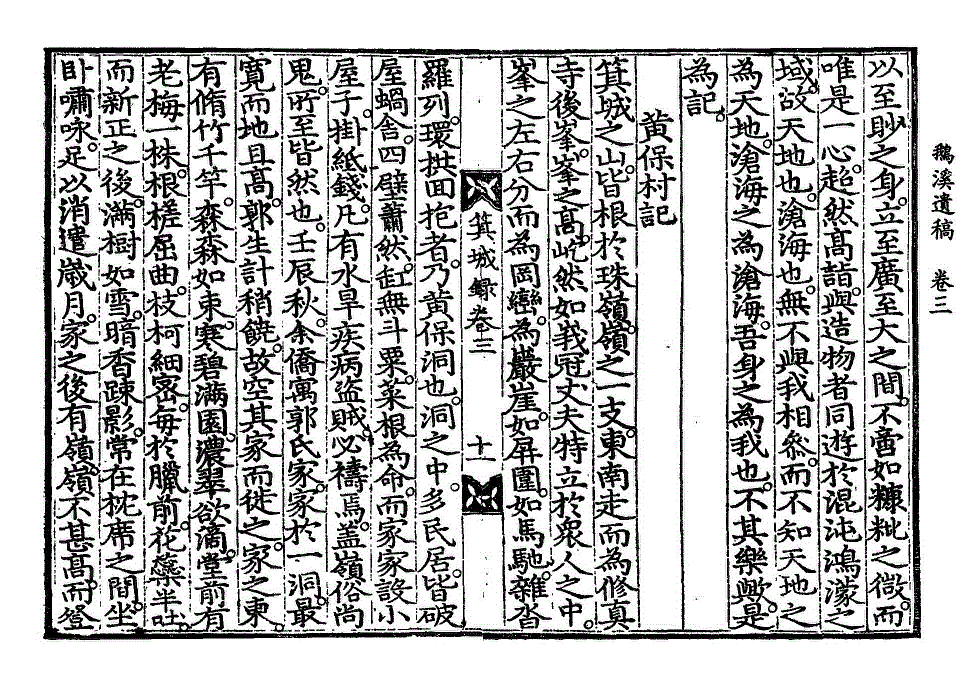 鵝溪遺稿 卷三
以至眇之身。立至廣至大之間。不啻如糠粃之微。而
唯是一心。超然高詣。與造物者同遊於混沌鴻濛之
域。故天地也。滄海也。無不與我相叅。而不知天地之
為天地。滄海之為滄海。吾身之為我也。不其樂歟。是
為記。
黄保村記
箕城之山。皆根於珠嶺。嶺之一支。東南走而為修眞
寺後峯。峯之高。屹然如峩冠丈夫特立於衆人之中。
峯之左右分而為岡巒。為巖崖。如屛圍。如馬馳。雜沓
箕城錄 卷三 十一
羅列。環拱回抱者。乃黄保洞也。洞之中。多民居。皆破
屋蝸舎。四壁蕭然。缸無斗粟。菜根為命。而家家設小
屋子。掛紙錢。凡有水旱疾病盜賊。必禱焉。盖嶺俗尚
鬼。所至皆然也。壬辰秋。余僑寓郭氏家。家於一洞。最
寬而地且高。郭生計稍饒。故空其家而徙之。家之東。
有脩竹千竿。森森如束。寒碧滿園。濃翠欲滴。堂前有
老梅一株。根槎屈曲。枝柯細密。每於臘前。花蘂半吐。
而新正之後。滿樹如雪。暗香踈影。常在枕席之間。坐
卧嘯咏。足以消遣歲月。家之後有嶺。嶺不甚高。而登